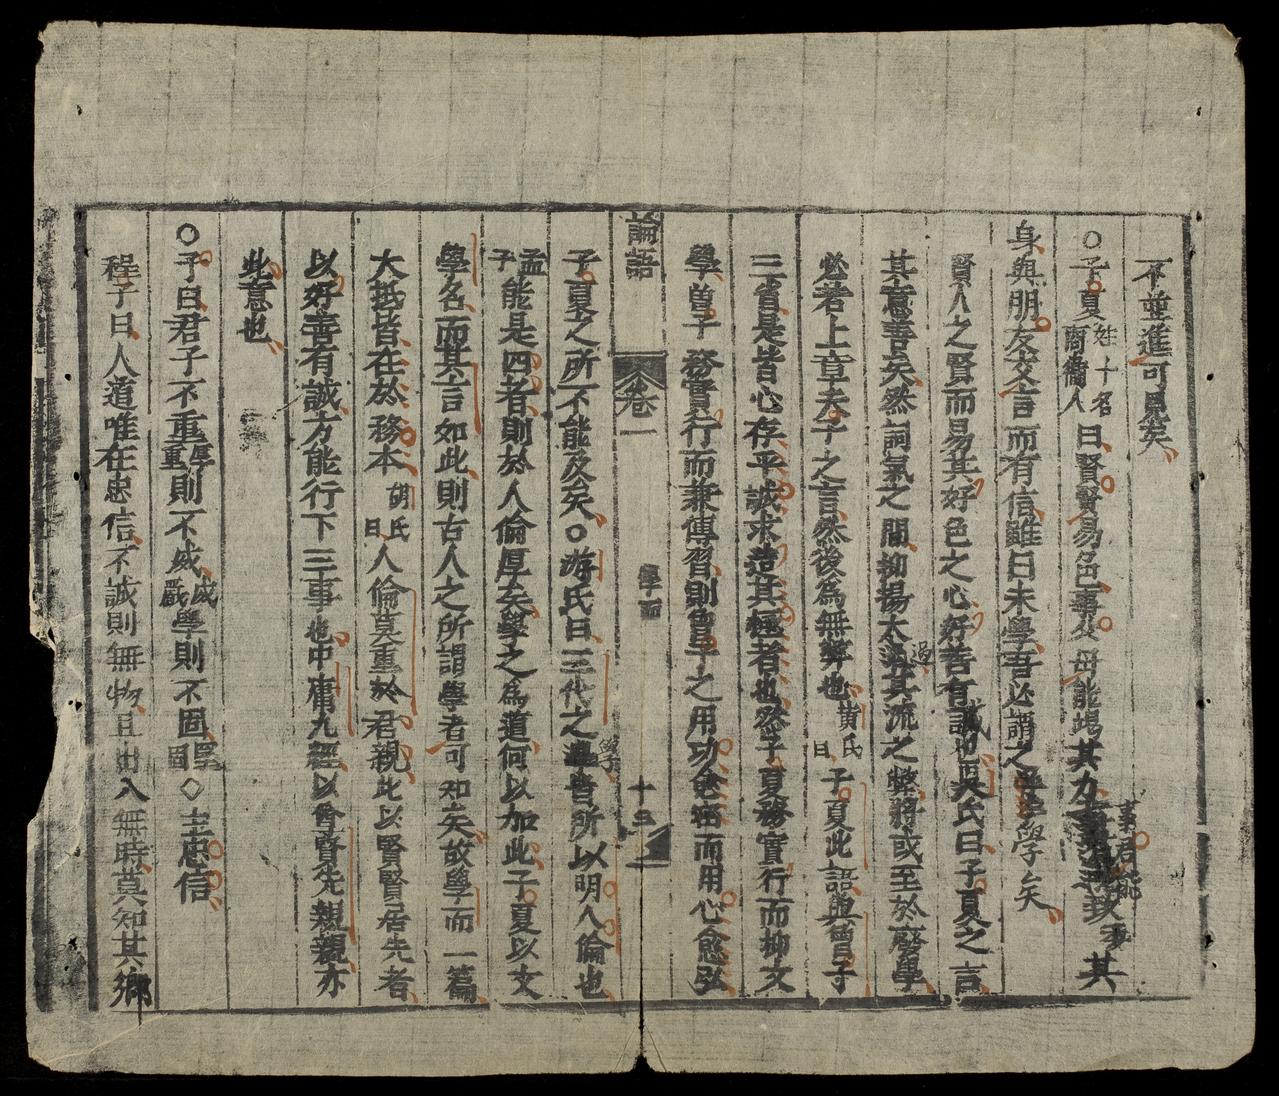 不並進可見矣
○子夏姓卜名商衞人曰賢賢易色事父母能竭其力事君能致其
身與朋友交言而有信雖曰未學吾必謂之學矣
賢人之賢而易其好色之心好善有誠也吳氏曰子夏之言
其意善矣然詞氣之間抑揚太過其流之弊將或至於廢學
必若上章夫子之言然後爲無弊也黃氏曰子夏此語與曾子
三省是皆心存乎誠求造其極者也然子夏務實行而抑文
學曾子務實行而兼傳習則曾子之用功愈密而用心愈弘
論語
卷一
學而
十三
子夏之所不能及矣○游氏曰三代之學皆所以明人倫也
孟子能是四者則於人倫厚矣學之爲道何以加此子夏以文
學名而其言如此則古人之所謂學者可知矣故學而一篇
大抵皆在於務本胡氏曰人倫莫重於君親此以賢賢居先者
以好善有誠方能行下三事也中庸九經以尊賢先親親亦
此意也
○子曰君子不重重厚則不威威嚴學則不固堅固◇主忠信
程子曰人道唯在忠信不誠則無物且出入無時莫知其鄉